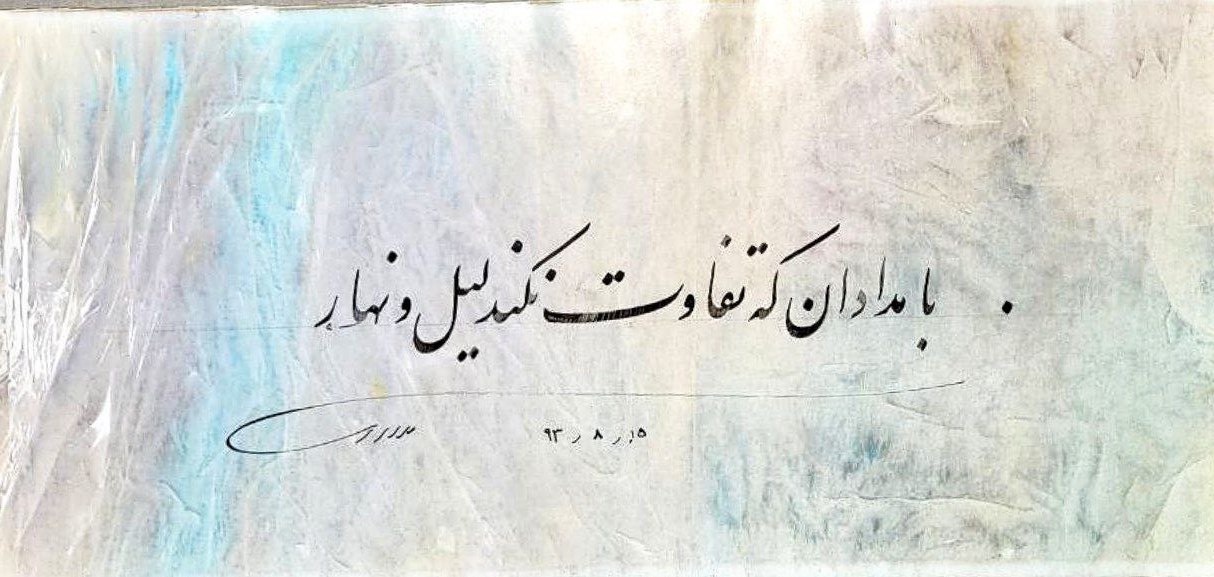 بامدادان که تفاوت نکند لیل و نهار
۱۵ ر ۸ ر ۹۳